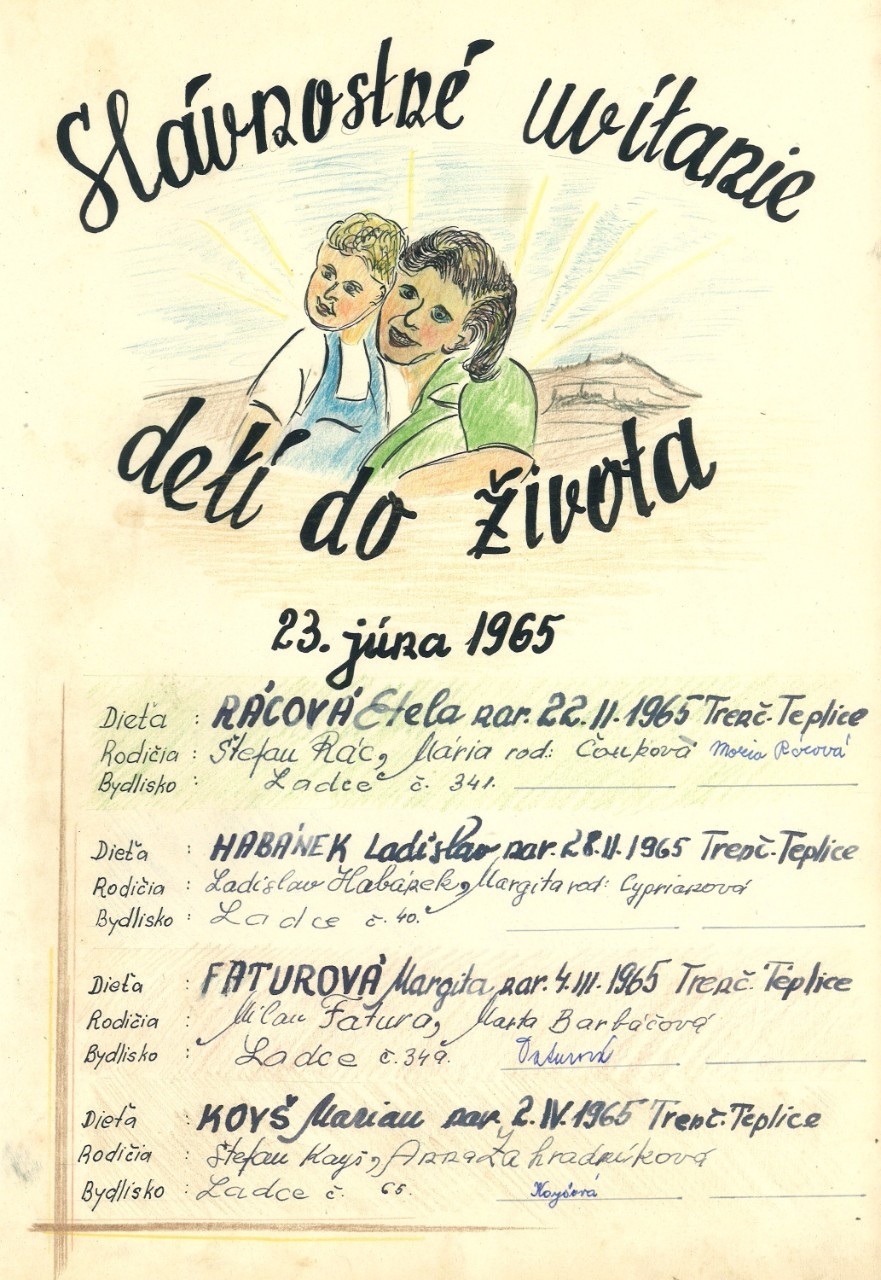 Slávnostné uvítanie
detí do života
23. júna 1965
Dieťa : RÁCOVÁ Etela nar. 22.II.1965 Trenč. Teplice
Rodičia : Štefan Rác, Mária rod: Čonková Maria Rácová
Bydlisko : Ladce č. 341.
Dieťa : HABÁNEK Ladislav nar. 28.II.1965 Trenč. Teplice
Rodičia : Ladislav Habánek, Margita rod: Cyprianová
Bydlisko : Ladce č. 40.
Dieťa : FATUROVÁ Margita nar. 4.III.1965 Trenč. Teplice
Rodičia : Milan Fatura, Marta Barbáčová
Bydlisko : Ladce č. 349. Faturová
Dieťa : KOYŠ Marian nar. 2.IV.1965 Trenč. Teplice
Rodičia : Štefan Kayš, Anna Zahradníková
Bydlisko : Ladce č. 65. Koyšová